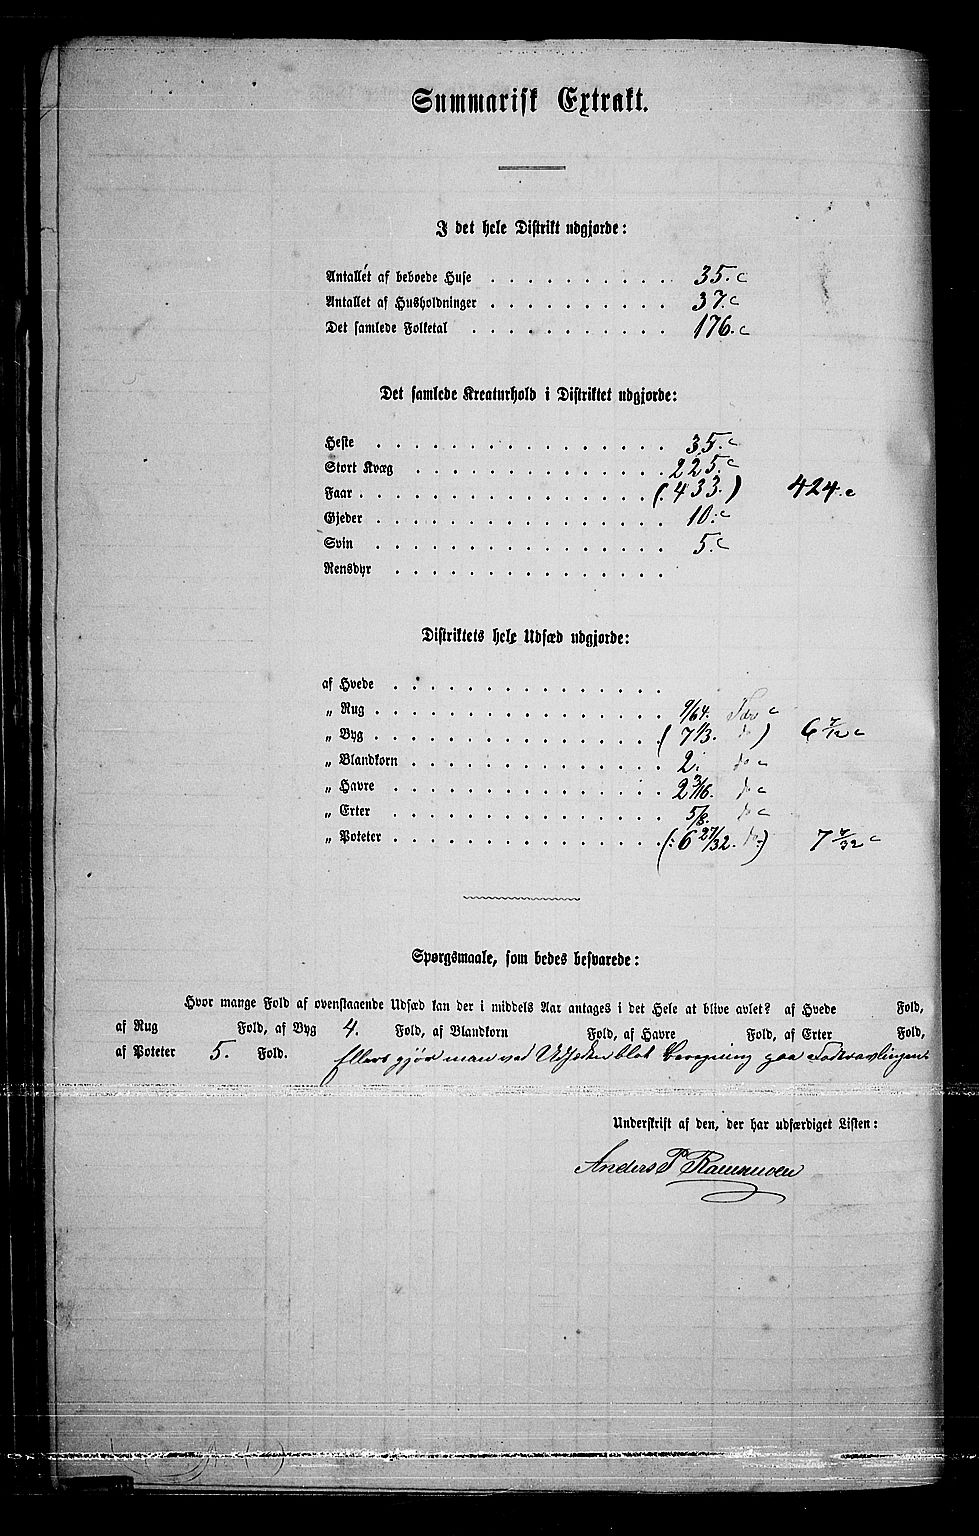 Summarisk Extrakt.
I det hele Distrikt udgjorde:
Antallet af beboede Huse . . . . . . . . . . 35. c
Antallet af Husholdninger . . . . . . . . . . 37. c
Det samlede Folketal . . . . . . . . . . . 176. c
Det samlede Kreaturhold i Distriktet udgjorde:
Heste . . . . . . . . . . . . . . . . 35. c
Stort Kvæg . . . . . . . . . . . . . . 225. c
Faar . . . . . . . . . . . . . . . . . (433.) 424. c
Gjeder . . . . . . . . . . . . . . . . 10. c
Svin . . . . . . . . . . . . . . . . 5. c
Rensdyr . . . . . . . . . . . . . . .
Distriktets hele Udsæd udgjorde:
af Hvede . . . . . . . . . . . . . . .
„ Rug . . . . . . . . . . . . . . . . 9/64. Tdr c
„ Byg . . . . . . . . . . . . . . . . (7 1/3. do) 6 7/12 c
„ Blandkorn . . . . . . . . . . . . . 2. do c
„ Havre . . . . . . . . . . . . . . . 2 3/16. do c
„ Erter . . . . . . . . . . . . . . . 5/8. do c
„ Poteter . . . . . . . . . . . . . . . (: 6 27/32. do :) 7 7/32 c
Spørgsmaale, som bedes besvarede:
Hvor mange Fold af ovenstaaende Udsæd kan der i middels Aar antages i det Hele at blive avlet? af Hvede Fold,
af Rug Fold, af Byg 4. Fold, af Blandkorn Fold, af Havre Fold, af Erter Fold,
af Poteter 5. Fold. Ellers gjør man ved Udsæden blot Beregning paa Foderavlingen
Underskrift af den, der har udfærdiget Listen:
Anders P Rasmussen